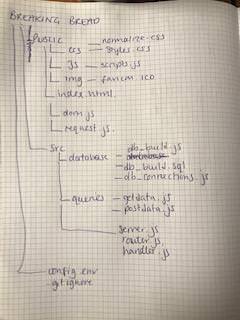 BREAKING BREAD
PUBLIC
normalize.css
css styles.css
js scripts.js
img favicon.ico
index.html
dom.js
request.js
src
database db_build.js
db_build.sql
db_connections.js
queries getdata.js
postdata.js
server.js
router.js
handler.js
config.env
.gitignore